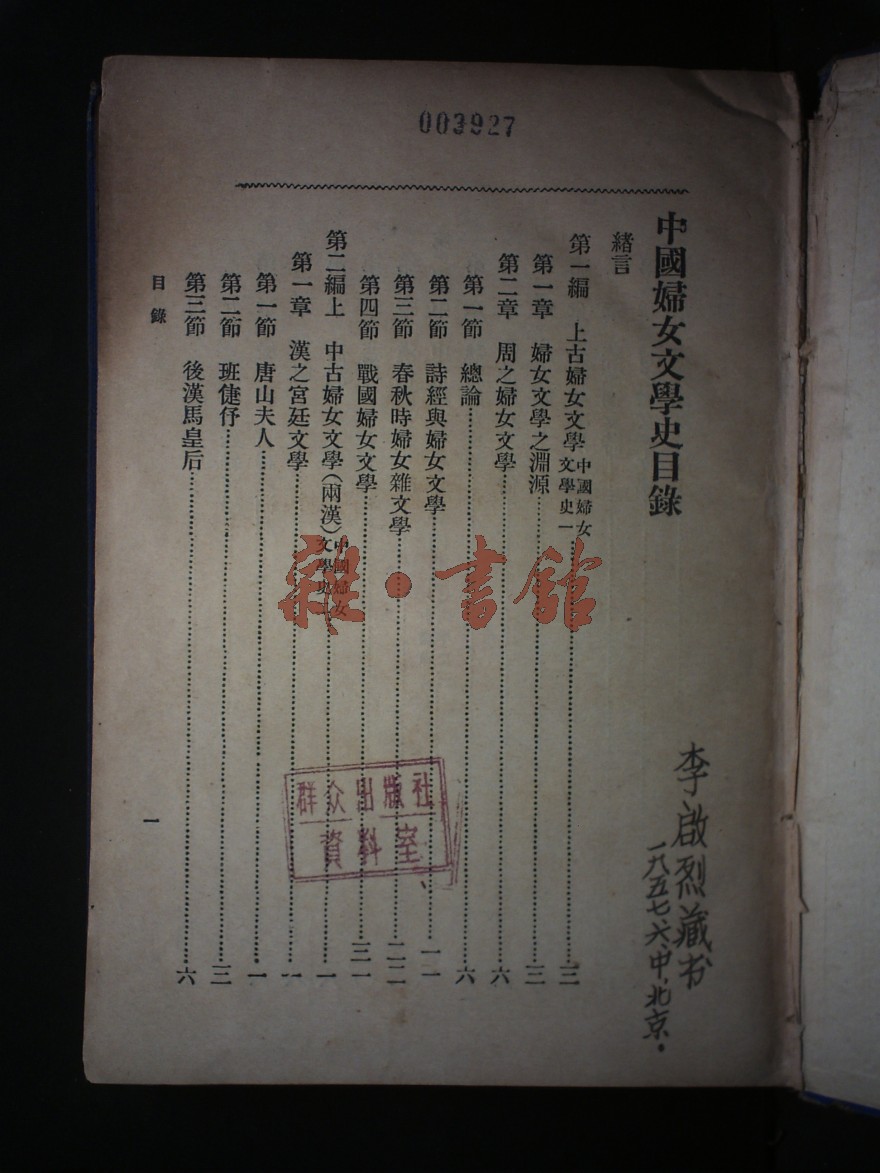 003927
中國婦女文學史目錄
緒言
第一編　上古婦女文學 中國婦女文學史一……三
第一章　婦女文學之淵源……三
第二章　周之婦女文學……六
第一節　總論……六
第二節　詩經與婦女文學……一一
第三節　春秋時婦女雜文學……二二
第四節　戰國婦女文學……三一
第二編上　中古婦女文學(兩漢) 中國婦女文學史……一
第一章　漢之宮廷文學……一
第一節　唐山夫人……一
第二節　班倢伃……三
第三節　後漢馬皇后……六
目錄
一
李啟烈藏书
一九五七、六、中、北京.
群众出版社
資料室
雜·書館